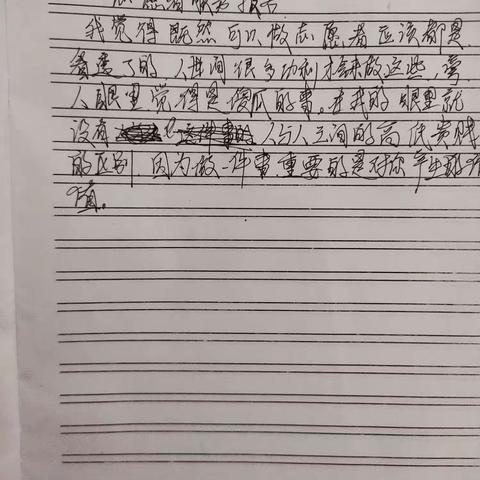 我觉得既然可以做志愿者应该都是
看透了的，人世间很多功利才去做这些，旁
人眼里觉得是傻瓜的事。在我的眼里就
没有人与人之间的高低贵贱
的区别，因为做一件事，重要的是对你产生的价
值。